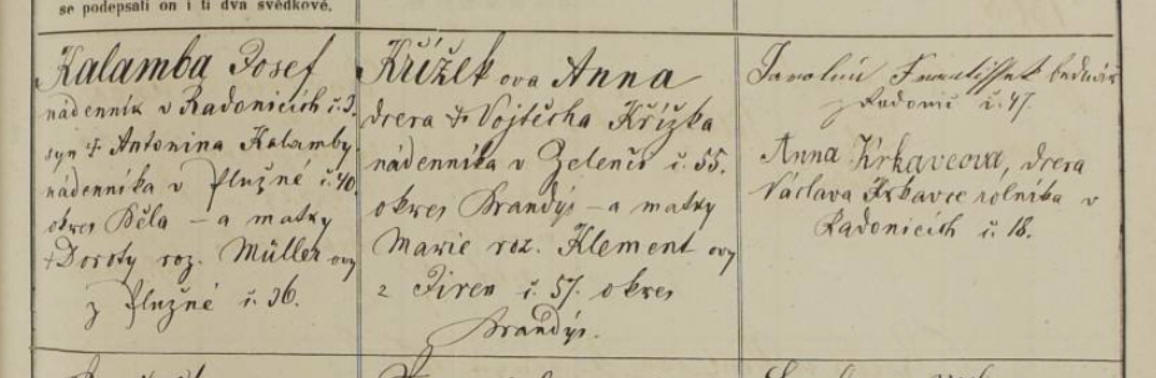 se podepsali on i ti dva svědkové.
Kalamba Josef
nádenník v Radonicích č. 3.
syn † Antonina Kalamby
nádenníka v Plužné č. 40.
okres Běla – a matky
† Doroty roz. Müller ovy
z Plužné č. 36.
Křížek ova Anna
dcera † Vojtěcha Křížka
nádenníka v Zelenči č. 55.
okres Brandýs – a matky
Marie roz. Klement ovy
z Jiren č. 57. okres
Brandýs.
Jarolím František bednář
z Radonic č. 47.
Anna Krkavcova, dcera
Václava Krkavce rolníka v
Radonicích č. 18.